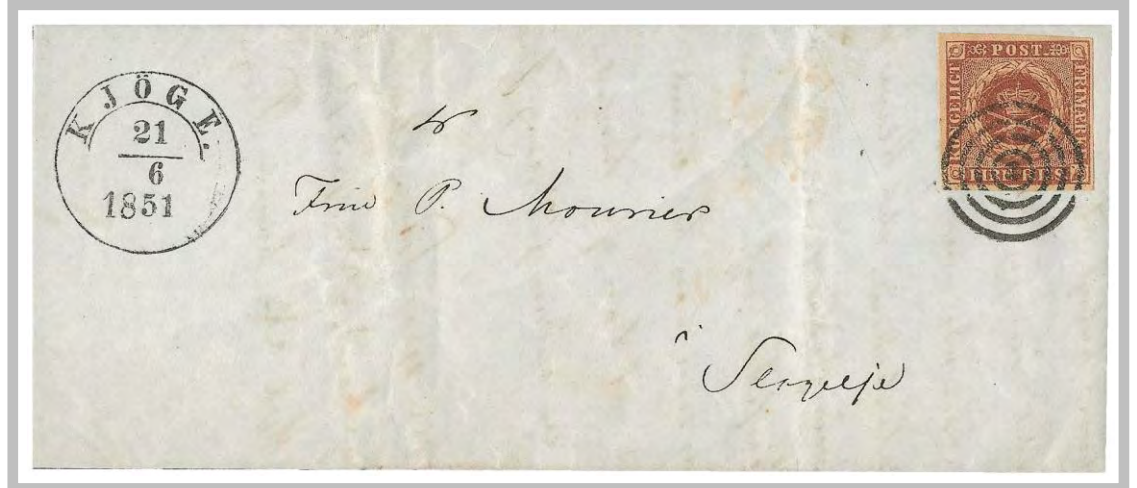 KJÖGE.
21
6
1851
POST.
KONGELIGT
FRIMÆR
FIRE R.B.S.
Frue P. Mourier
i
Slagelse